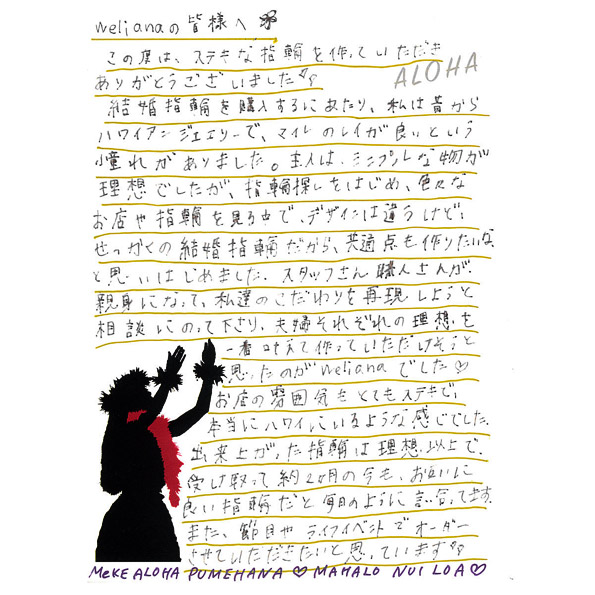 welianaの皆様へ
この度は、ステキな指輪を作っていただき
ありがとうございました
ALOHA
結婚指輪を購入するにあたり、私は昔から
ハワイアンジュエリーで、マイレのレイが良いという
憧れがありました。主人は、シンプルな物が
理想でしたが、指輪探しをはじめ、色々な
お店や指輪を見る中で、デザインは違うけど、
せっかくの結婚指輪だから、共通点も作りたいな
と思いはじめました。スタッフさん、職人さんが、
親身になって、私達のこだわりを再現しようと
相談にのって下さり、夫婦それぞれの理想を
一番叶えて作っていただけそうと
思ったのがwelianaでした♡
お店の雰囲気もとてもステキで、
本当にハワイにいるような感じでした。
出来上がった指輪は理想以上で、
受け取って約2ヶ月の今も、お互いに
良い指輪だと毎日のように言い合ってます。
また、節目やライフイベントでオーダー
させていただきたいと思っています
MeKE ALOHA PUMEHANA ♡ MAHALO NUI LOA ♡